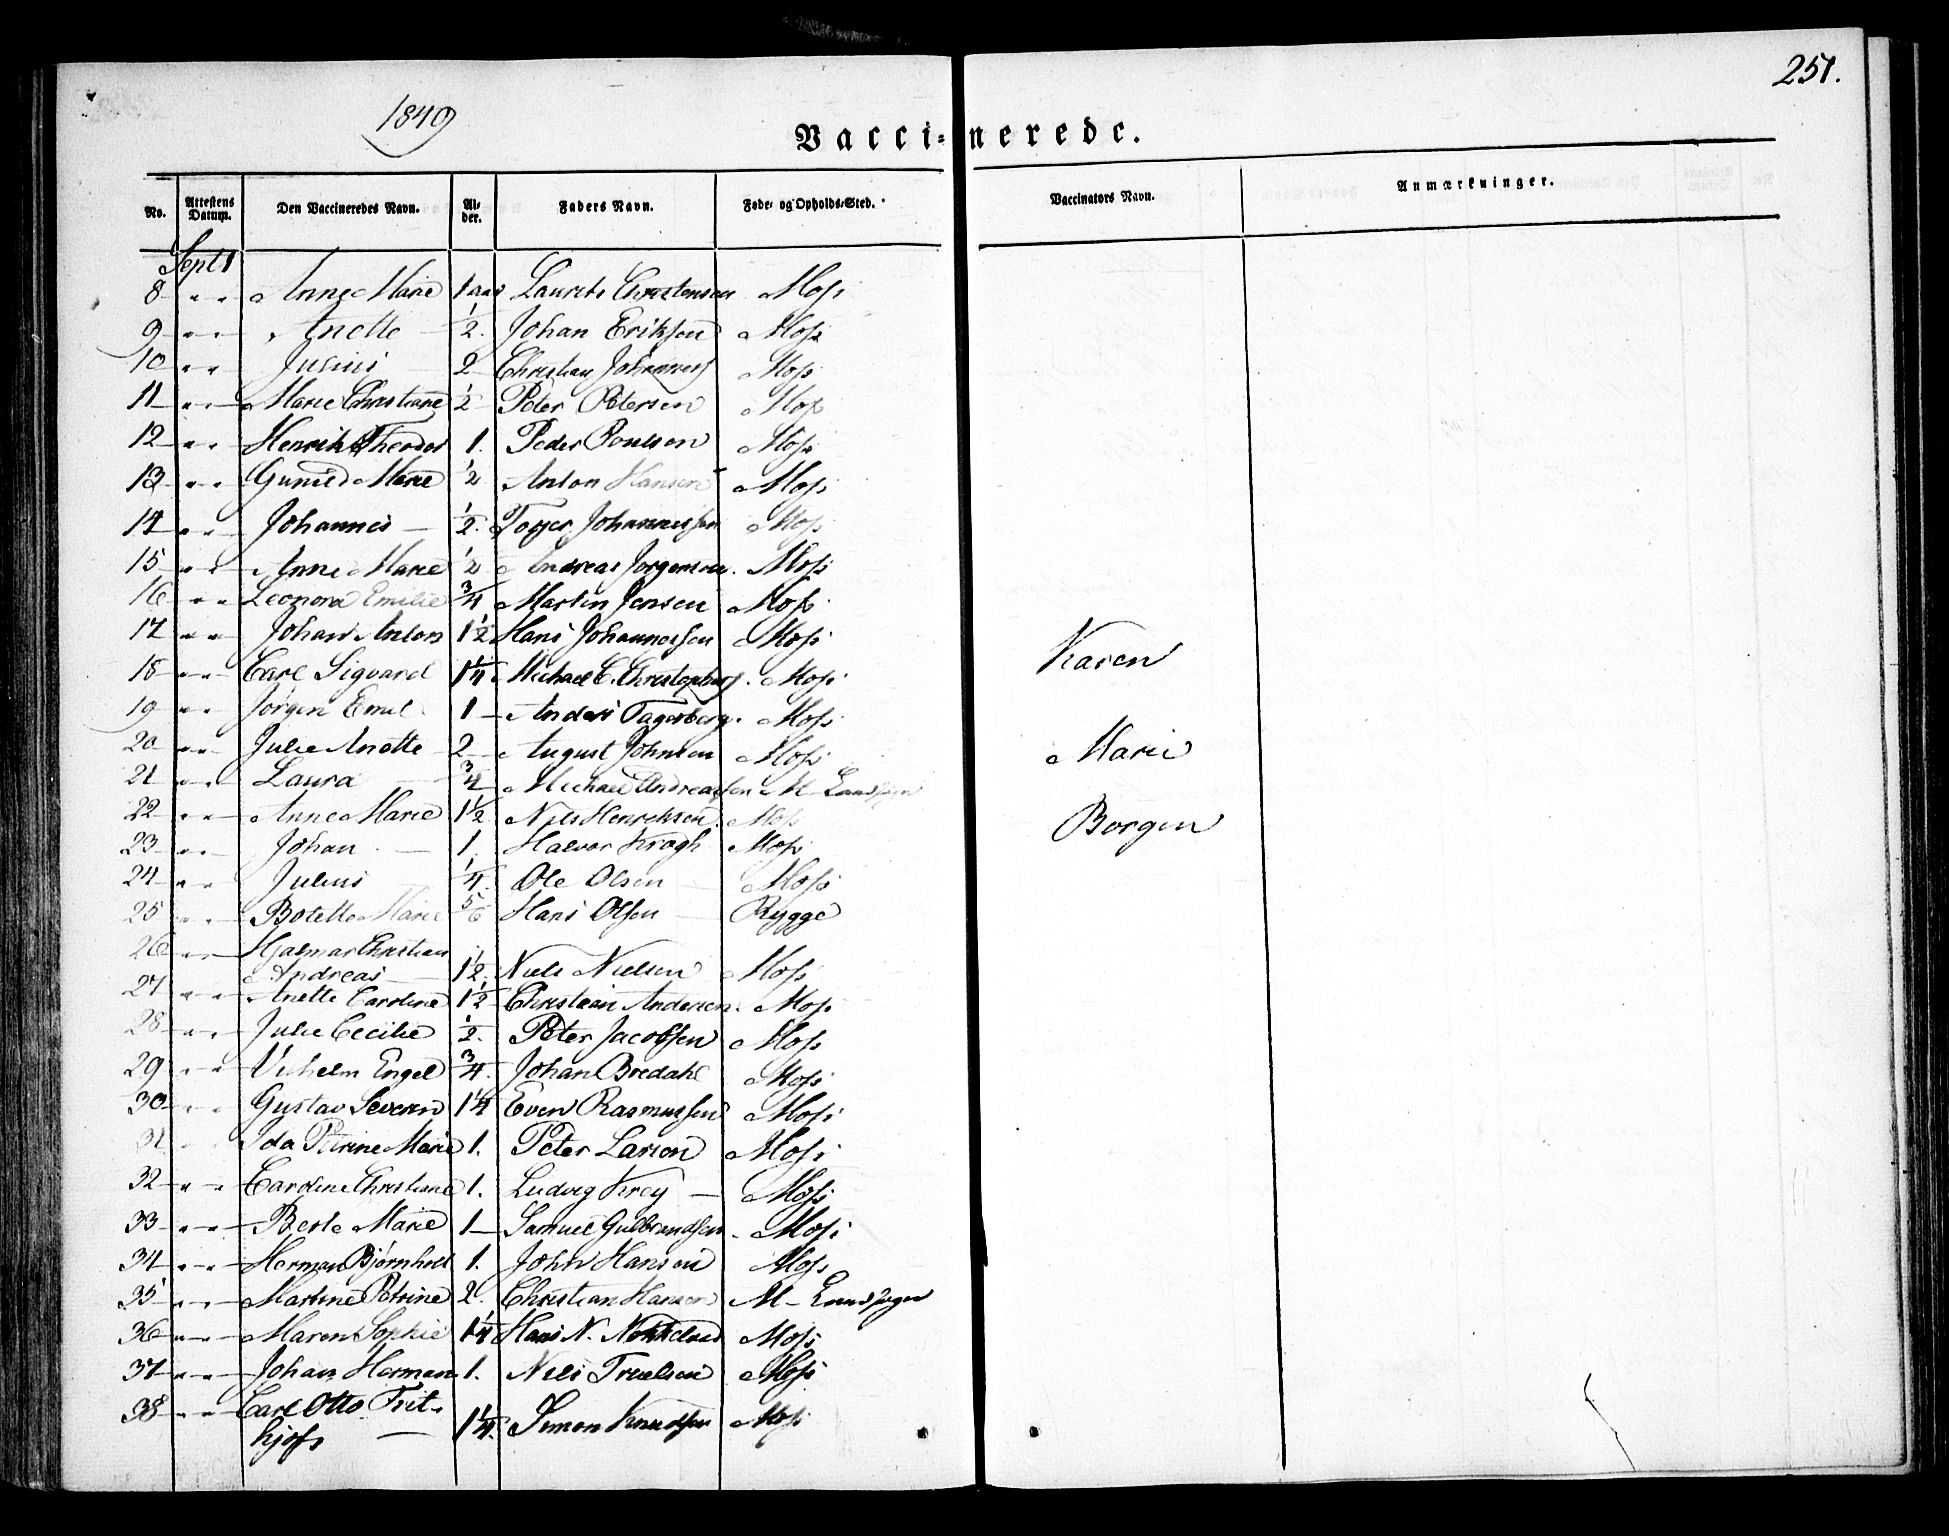 251.
1849
Vacci-nerede.
No. Attestens Datum. Den Vaccineredes Navn. Al-der. Faders Navn. Føde- og Opholds-Sted. Vaccinators Navn. Anmærkninger.
Sept 1
8 " " Anne Marie 1 aar Laurits Christensen Moss
9 " " Anette 1/2. Johan Eriksen Moss
10 " " Julius 2 Christian Johannes Moss
11 " " Marie Christiane 1/2 Peter Petersen Moss
12 " " Henrik Theodor 1. Peder Poulsen Moss
13 " " Gunild Marie 1/2 Anton Hansen Moss
14 " " Johannes 1/2. Johannessen Moss
15 " " Anne Marie 1/2 Andreas Jørgensen. Moss
16 " " Leonora Emilie 3/4 Martin Jensen Moss
17 " " Johan Anton 1 1/2 Hans Johannessen Moss
Karen
18 " " Carl Sigvard 1 1/4. Michael C. Christophers. Moss
19 " " Jörgen Emil 1 Anders Fagerberg. Moss
20 " " Julie Anette 2 August Johnsen Moss
Marie
21 " " Laura 3/4 Michael Andreassen M- Landsogn
22 " " Anne Marie 1 1/2 Niels Henriksen. Moss
23 " " Johan 1. Halvor Kragh Moss
Borgen
24 " " Julius 1/4. Ole Olsen Moss
25 " " Botelle Marie 5/6 Hans Olsen Rygge
26 " " Hjalmar Christian
Andreas 1 1/2. Niels Nielsen Moss
27 " " Anette Caroline 1 1/2 Christian Andersen. Moss
28 " " Julie Cecilie 1/2. Peter Jacobsen Moss
29 " " Vilhelm Engel 3/4. Johan Bredahl Moss
30 " " Gustav Severin 1 1/4 Even Rasmussen Moss
31 " " Ida Petrine Marie 1. Peter Larsen Moss
32 " " Caroline Christiane 1. Ludvig Krey Moss
33 " " Berte Marie 1 Samuel Gulbrandsen. Moss
34 " " Herman Bjørnholt 1. John Hansen Moss
35 " " Martine Petrine 2. Christian Hansen M- Landsogn
36 " " Maren Sophie 1 1/4 Hans N. Moss
37 " " Johan Herman 1. Niels Truelsen Moss
38 " " Carl Otto Frit-
hjof 1 1/4. Simon Knudsen Moss